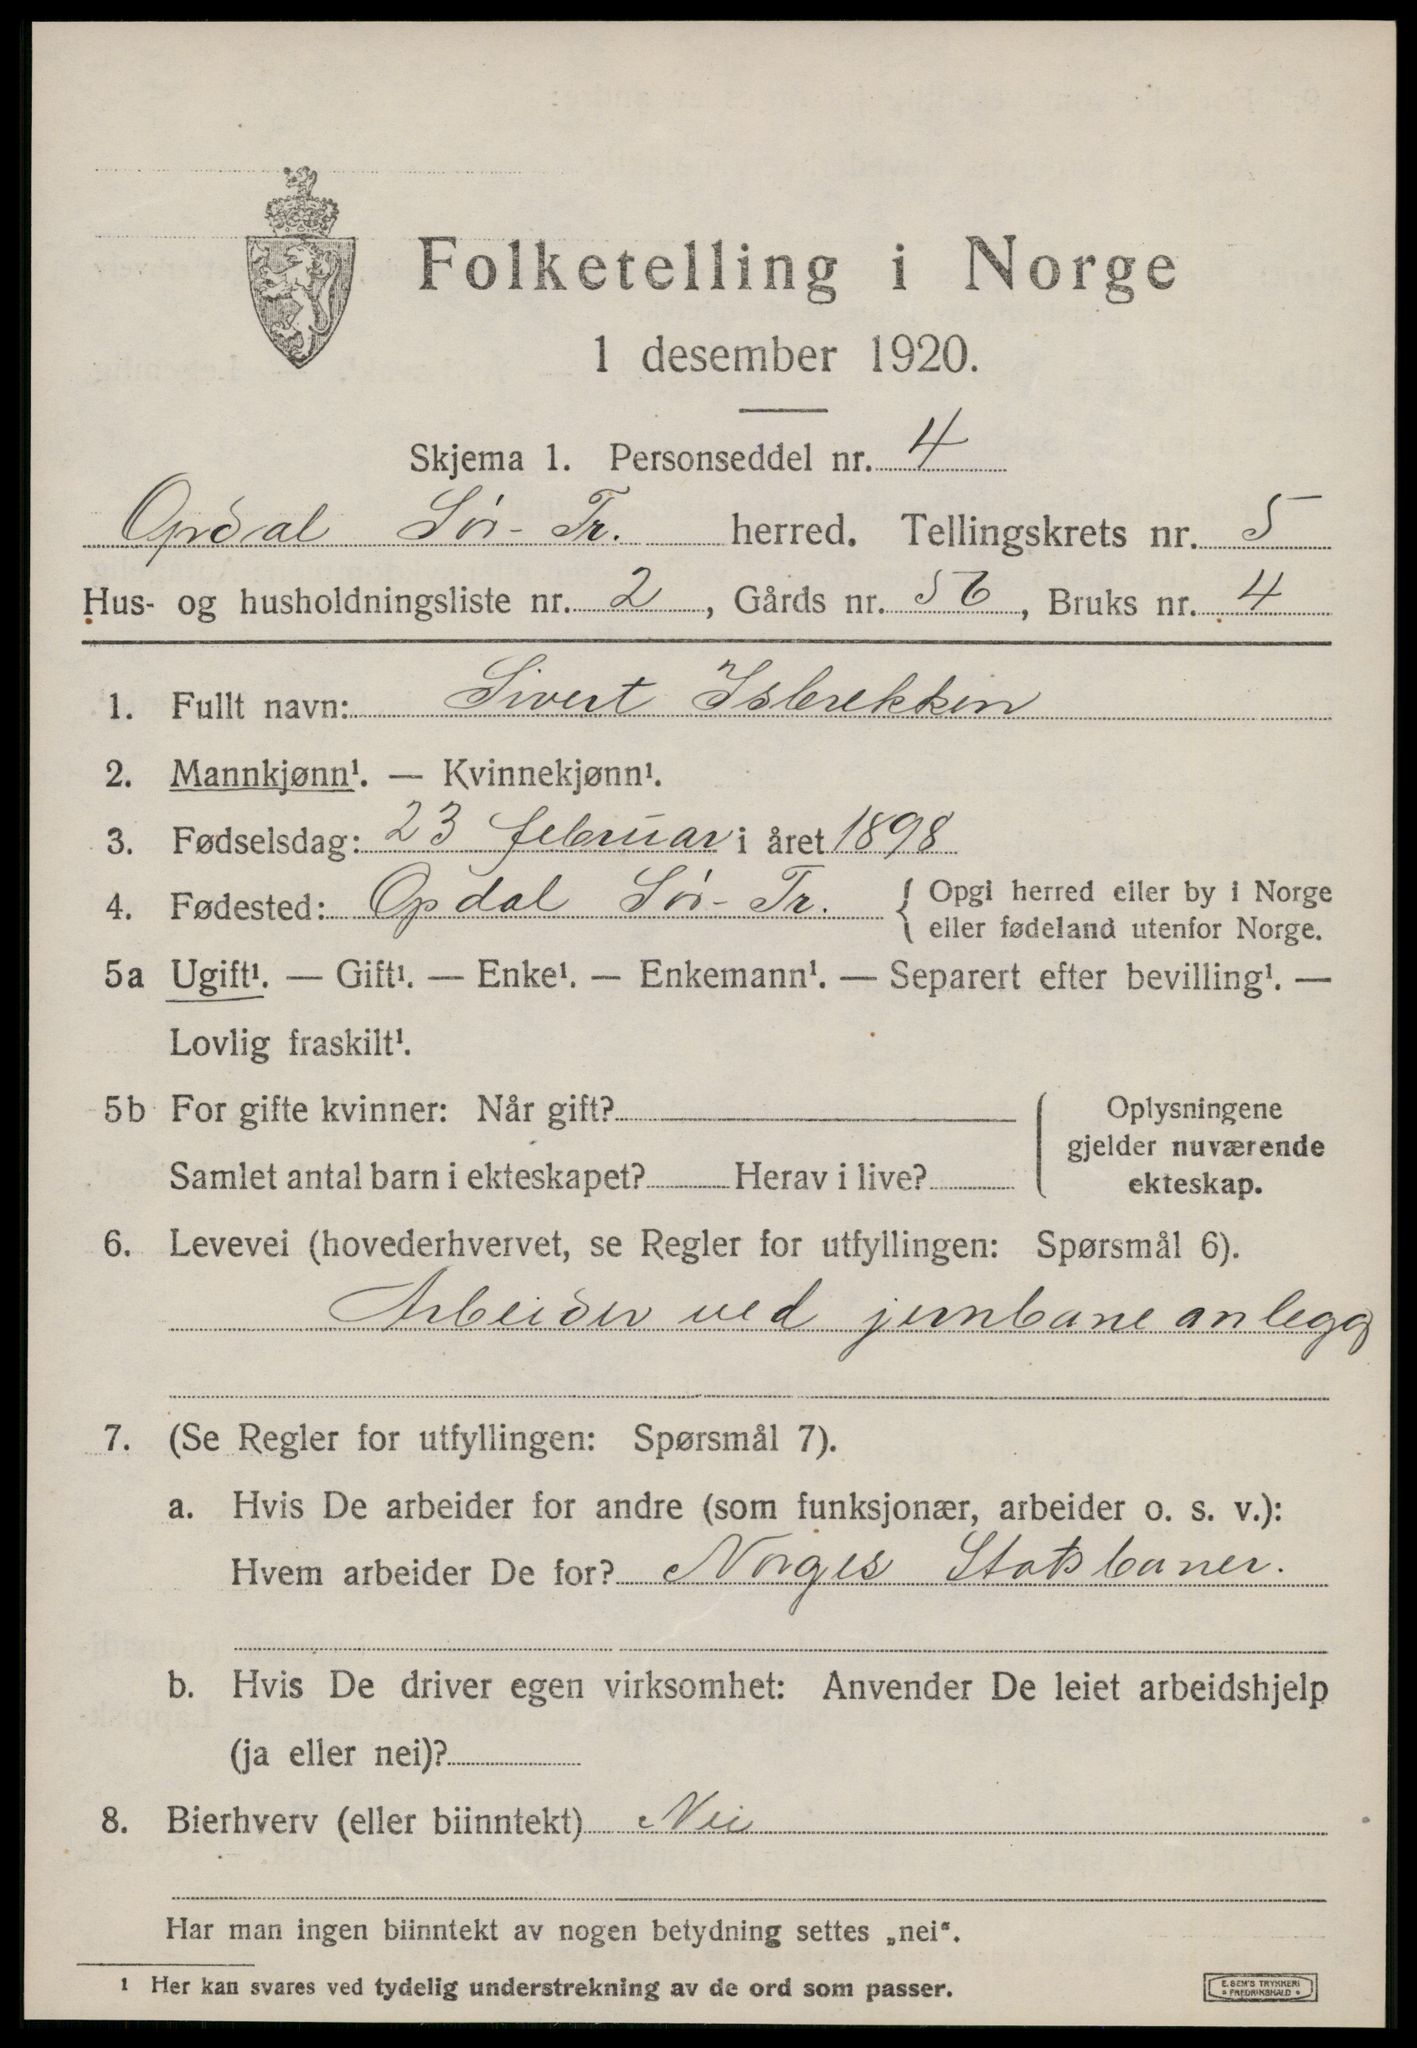 Folketelling i Norge
1 desember 1920.
Skjema 1. Personseddel nr. 4
Opdal Sør-Tr. herred. Tellingskrets nr. 5
Hus- og husholdningsliste nr. 2, Gårds nr. 56, Bruks nr. 4
1. Fullt navn: Sivert Isbrekken
2. Mannkjønn¹. — Kvinnekjønn¹.
3. Fødselsdag: 23 februar i året 1898
4. Fødested: Opdal Sør-Tr. { Opgi herred eller by i Norge
eller fødeland utenfor Norge.
5a Ugift¹. — Gift¹. — Enke¹. — Enkemann¹. — Separert efter bevilling¹. —
Lovlig fraskilt¹.
5b For gifte kvinner: Når gift?
Samlet antal barn i ekteskapet? Herav i live?
Oplysningene
gjelder nuværende
ekteskap.
6. Levevei (hovederhvervet, se Regler for utfyllingen: Spørsmål 6).
Arbeider ved jernbaneanlegg
7. (Se Regler for utfyllingen: Spørsmål 7).
a. Hvis De arbeider for andre (som funksjonær, arbeider o. s. v.):
Hvem arbeider De for? Norges Statsbaner.
b. Hvis De driver egen virksomhet: Anvender De leiet arbeidshjelp
(ja eller nei)?
8. Bierhverv (eller biinntekt) Nei
Har man ingen biinntekt av nogen betydning settes „nei“.
1 Her kan svares ved tydelig understrekning av de ord som passer.
E. SEM'S TRYKKERI
FREDRIKSHALD